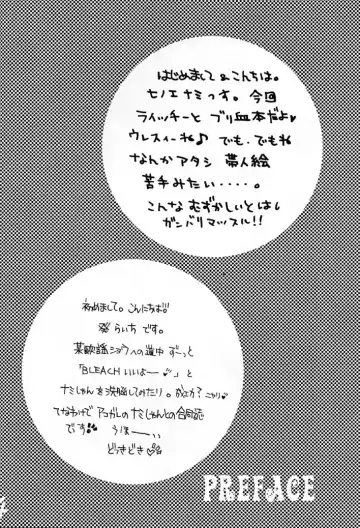 はじめまして&こんちは。
七ノエナミっす。今回
ライッチーとブリ血本だよ♥
ウレスィーね♪ でも・でもね
なんかアタシ 帯人絵
苦手みたい‥‥。
こんな むずかしいとは
ガンバリマッスル!!
初めまして。こんにちわ!!
らいち です。
某歌謡ショウへの道中 ず〜っと
「BLEACH いいよー」と
ナミしゃんを洗脳してみたり。
てなわけで ナミしゃんとの合同誌
です
どっきどき
PREFACE
4